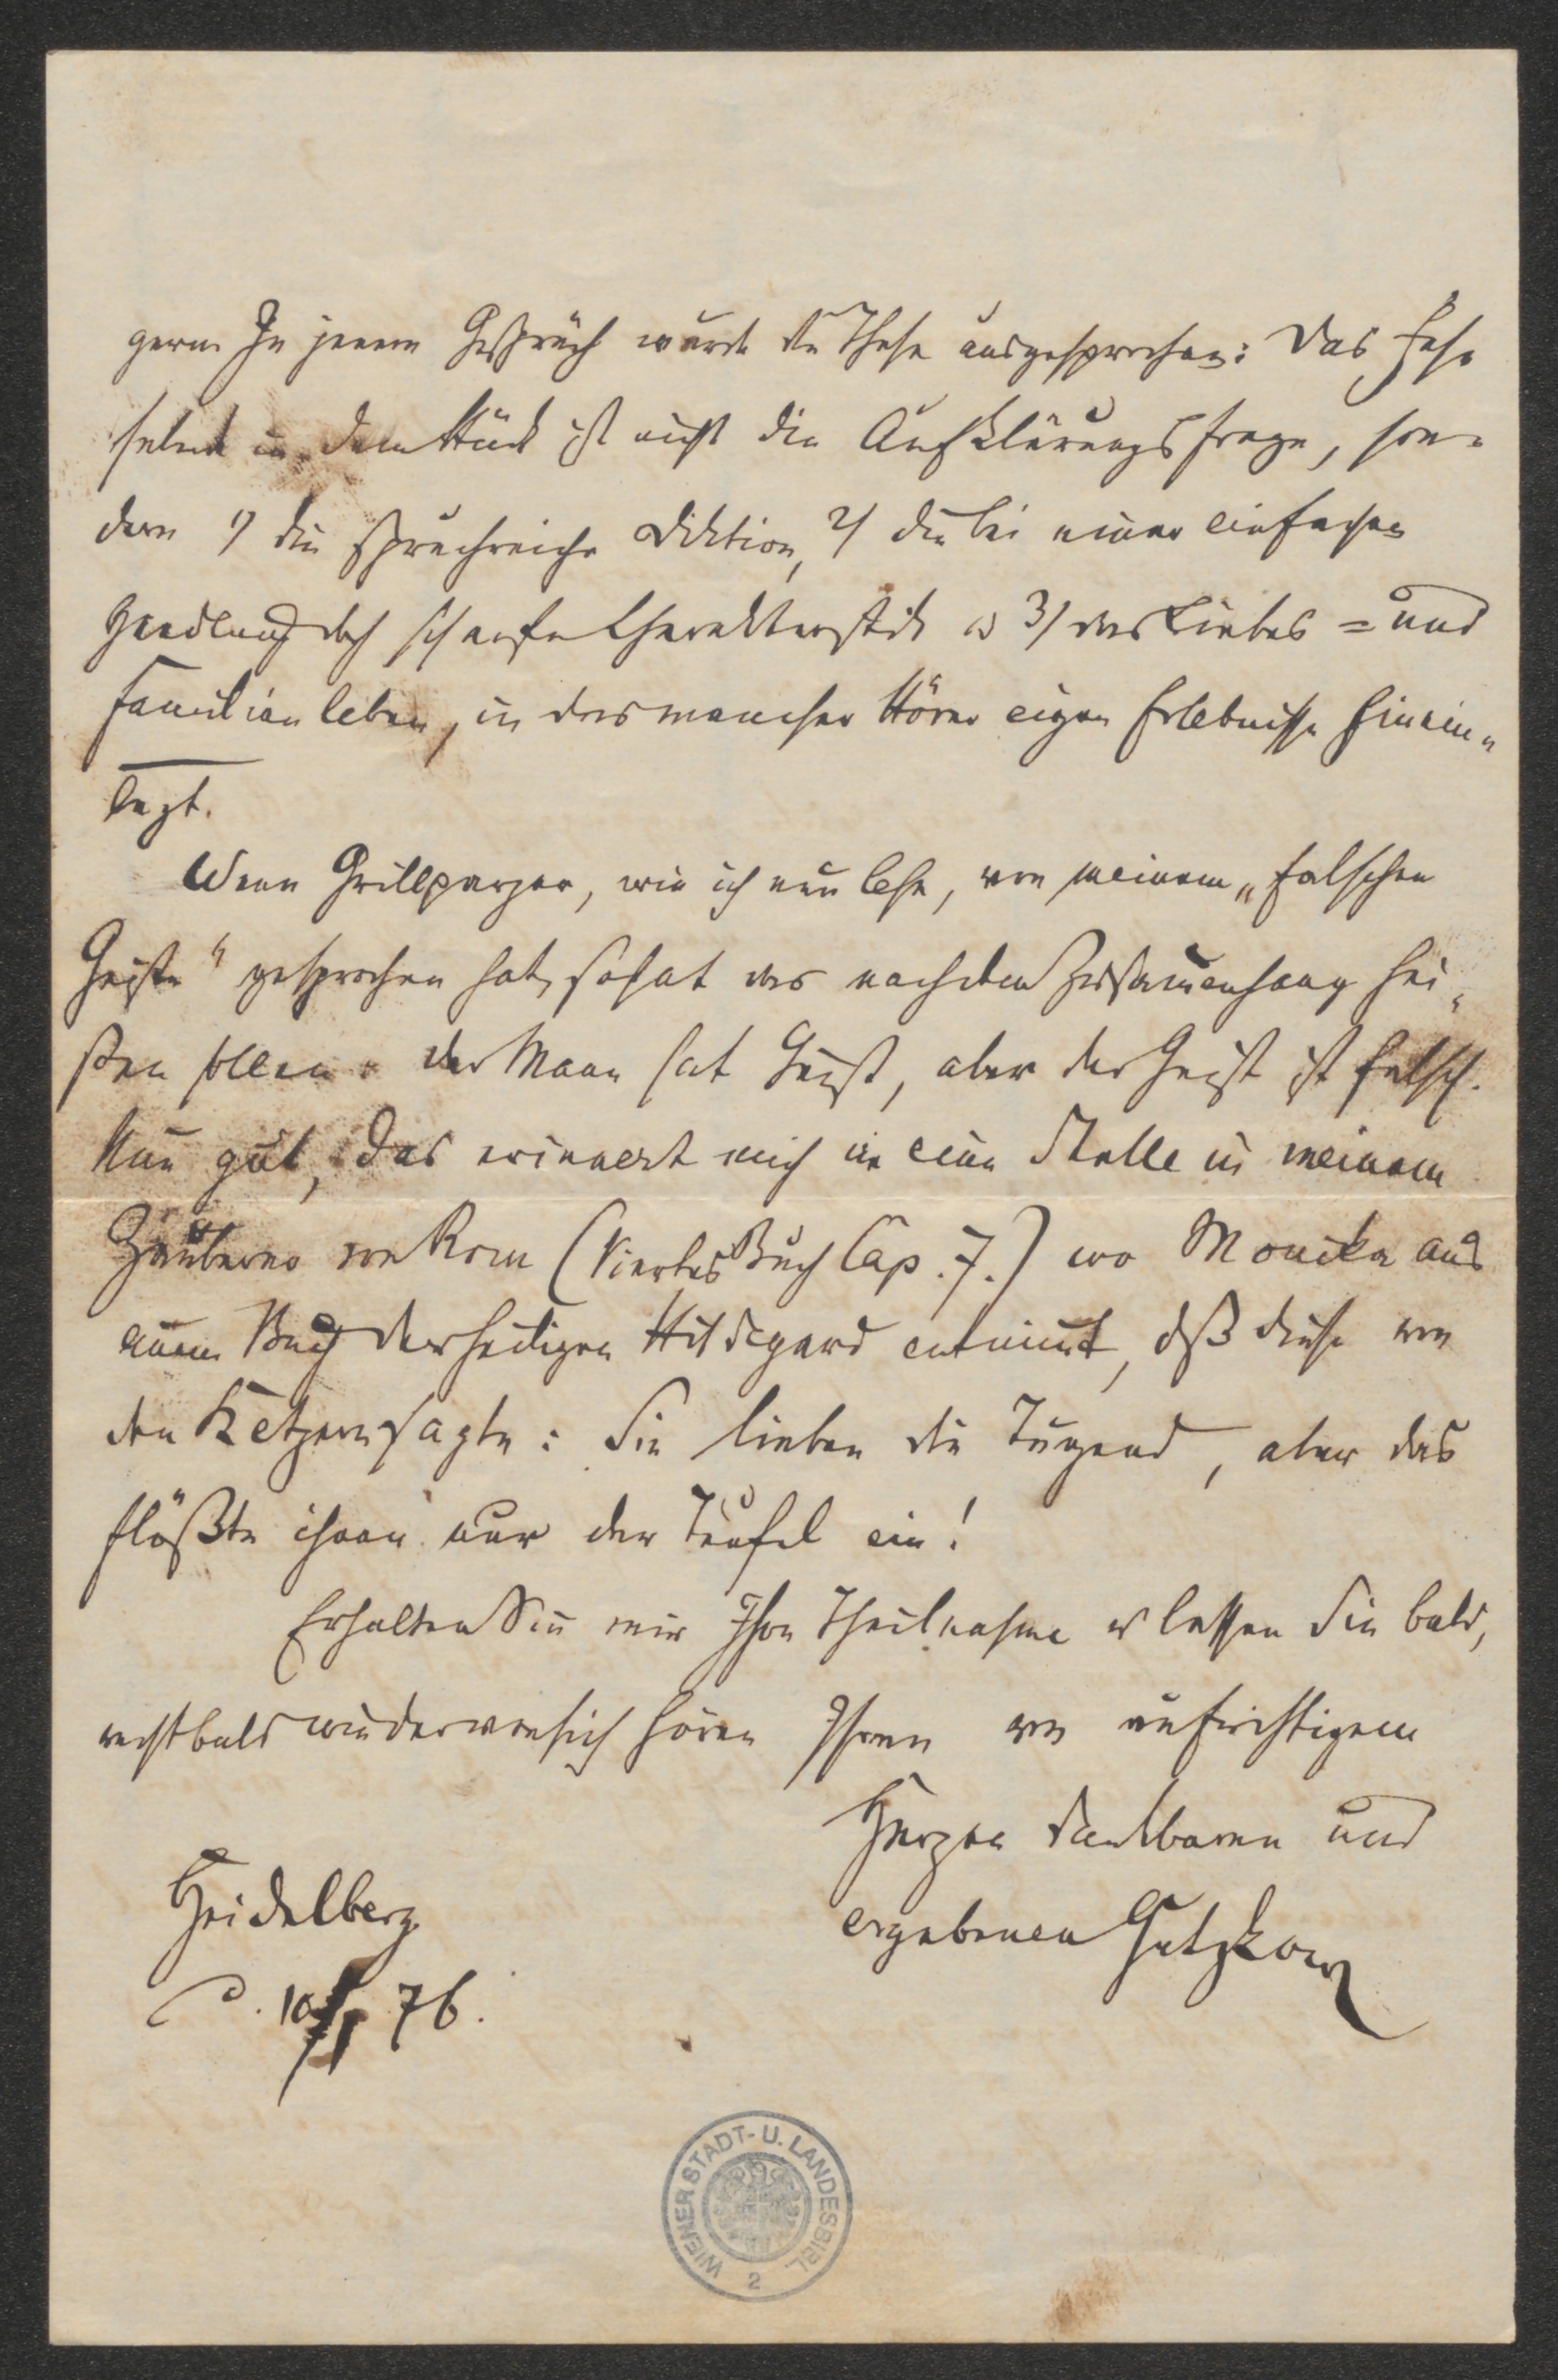 gern. In jenem Gespräch wurde die These ausgesprochen: Das Fes-
selnde in dem Stück ist nicht die Aufklärungsfrage, son-
dern 1) die spruchreiche Diktion, 2) die bei einer einfachen
Handlung doch scharfe Charakteristik u 3) das Liebes= und
Familienleben, in das mancher Hörer eigne Erlebnisse hinein-
legt.
Wenn Grillparzer, wie ich nun lese, von meinem „falschen
Geiste" gesprochen hat, so hat es nach dem Zusammenhang hei-
ßen sollen: der Mann hat Geist, aber der Geist ist falsch.
Nun gut, das erinnert mich an eine Stelle in meinem
Zauberer von Rom (Viertes Buch Cap. 7.) wo Monika aus
einem Buch der heiligen Hildegard entnimmt, daß diese von
den Ketzern sagte: Sie lieben die Tugend, aber das
flößte ihnen nur der Teufel ein!
Erhalten Sie mir Ihre Theilnahme u lassen Sie bald,
recht bald wieder von sich hören Ihren von aufrichtigem
Herzen dankbaren und
ergebenen Gutzkow
Heidelberg
d. 10/1 76.
WIENER STADT- U. LANDESBIBL.
2